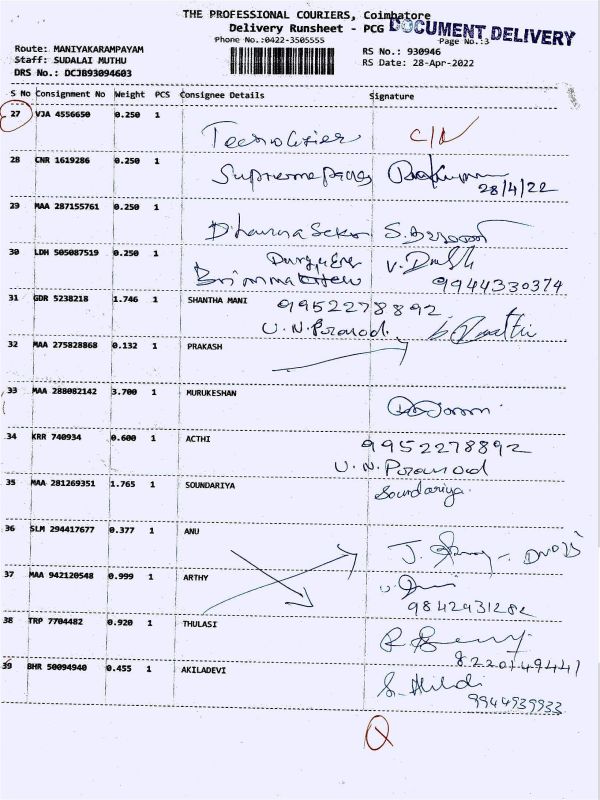 THE PROFESSIONAL COURIERS, Coimbatore
Delivery Runsheet - PCG DOCUMENT DELIVERY
Phone No.:0422-3505555 Page No.:3
Route: MANIYAKARAMPAYAM RS No.: 930946
Staff: SUDALAI MUTHU RS Date: 28-Apr-2022
DRS No.: DCJB93094603
S No Consignment No Weight PCS Consignee Details Signature
27 VJA 4556650 0.250 1
28 CNR 1619286 0.250 1
28/4/22
29 MAA 287155761 0.250 1
30 LDH 505087519 0.250 1
9944330374
31 GDR 5238218 1.746 1 SHANTHA MANI 9952278892
32 MAA 275828868 0.132 1 PRAKASH
33 MAA 288082142 3.700 1 MURUKESHAN
34 KRR 740934 0.600 1 ACTHI 9952278892
35 MAA 281269351 1.765 1 SOUNDARIYA Soundariya
36 SLM 294417677 0.377 1 ANU
37 MAA 942120548 0.999 1 ARTHY
9842431282
38 TRP 7704482 0.920 1 THULASI
8220149441
39 BHR 50094940 0.455 1 AKILADEVI
9944939933